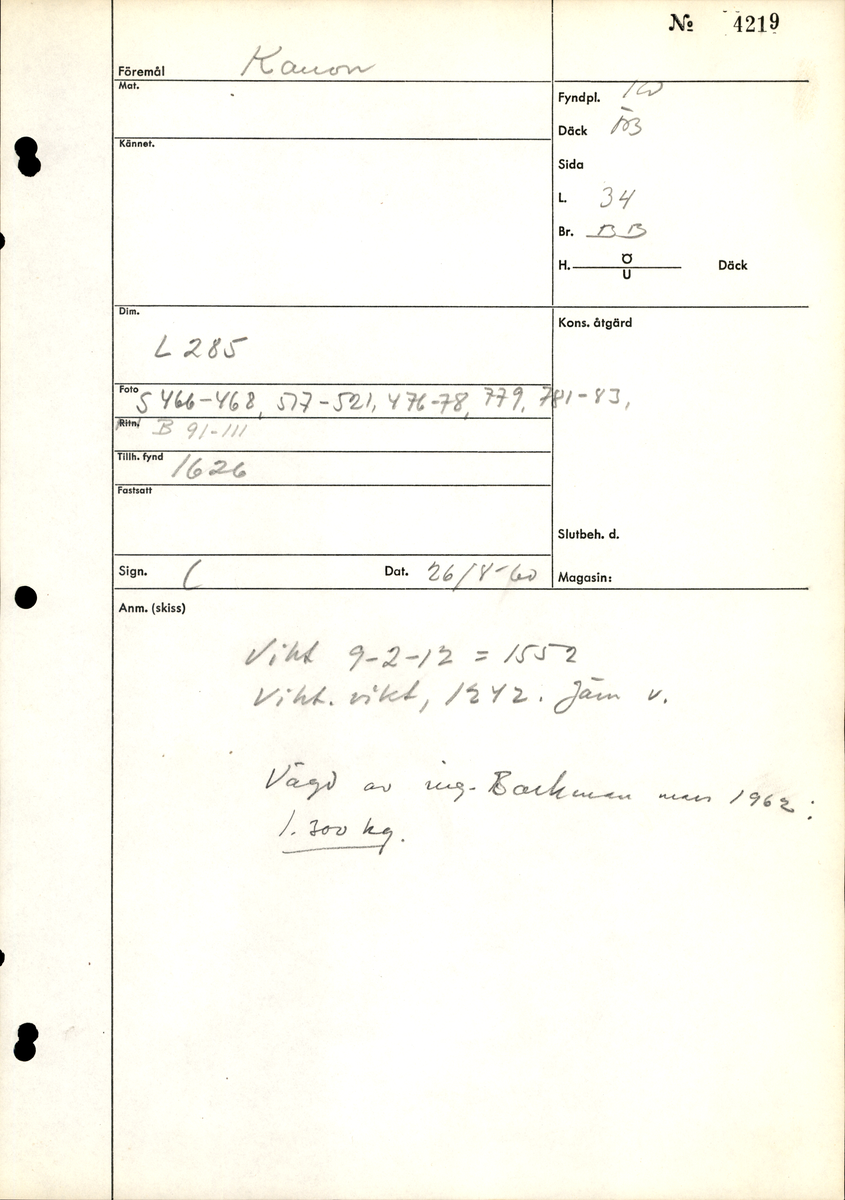 № 4219
Föremål Kanon
Mat.
Fyndpl.
Däck ÖB
Kännet.
Sida
L. 34
Br. BB
H. Ö
U Däck
Dim.
L 285
Kons. åtgärd
Foto S 466-468, 517-521, 476-78, 779, 781-83,
Ritn. B 91-111
Tillh. fynd 1626
Fastsatt
Slutbeh. d.
Sign. Dat. 26/8-60 Magasin:
Anm. (skiss)
Vikt 9-2-12 = 1552
Vikt. vikt, 1242. Järn v.
Vägd av ing. Backman mars 1962:
1.300 kg.